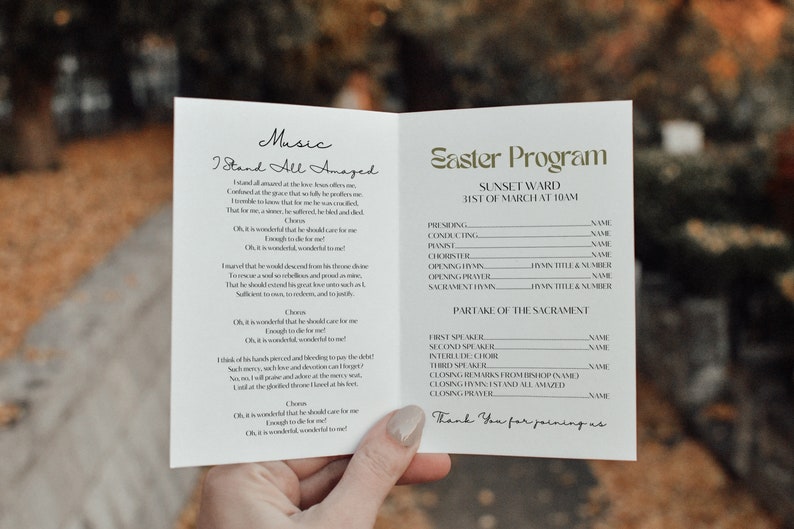 Music
I Stand All Amazed
I stand all amazed at the love Jesus offers me,
Confused at the grace that so fully he proffers me.
I tremble to know that for me he was crucified,
That for me, a sinner, he suffered, he bled and died.
Chorus
Oh, it is wonderful that he should care for me
Enough to die for me!
Oh, it is wonderful, wonderful to me!
I marvel that he would descend from his throne divine
To rescue a soul so rebellious and proud as mine,
That he should extend his great love unto such as I,
Sufficient to own, to redeem, and to justify.
Chorus
Oh, it is wonderful that he should care for me
Enough to die for me!
Oh, it is wonderful, wonderful to me!
I think of his hands pierced and bleeding to pay the debt!
Such mercy, such love and devotion can I forget?
No, no, I will praise and adore at the mercy seat,
Until at the glorified throne I kneel at his feet.
Chorus
Oh, it is wonderful that he should care for me
Enough to die for me!
Oh, it is wonderful, wonderful to me!
Easter Program
SUNSET WARD
31ST OF MARCH AT 10AM
PRESIDING NAME
CONDUCTING NAME
PIANIST NAME
CHORISTER NAME
OPENING HYMN HYMN TITLE & NUMBER
OPENING PRAYER NAME
SACRAMENT HYMN HYMN TITLE & NUMBER
PARTAKE OF THE SACRAMENT
FIRST SPEAKER NAME
SECOND SPEAKER NAME
INTERLUDE: CHOIR
THIRD SPEAKER NAME
CLOSING REMARKS FROM BISHOP (NAME)
CLOSING HYMN: I STAND ALL AMAZED
CLOSING PRAYER NAME
Thank You for joining us